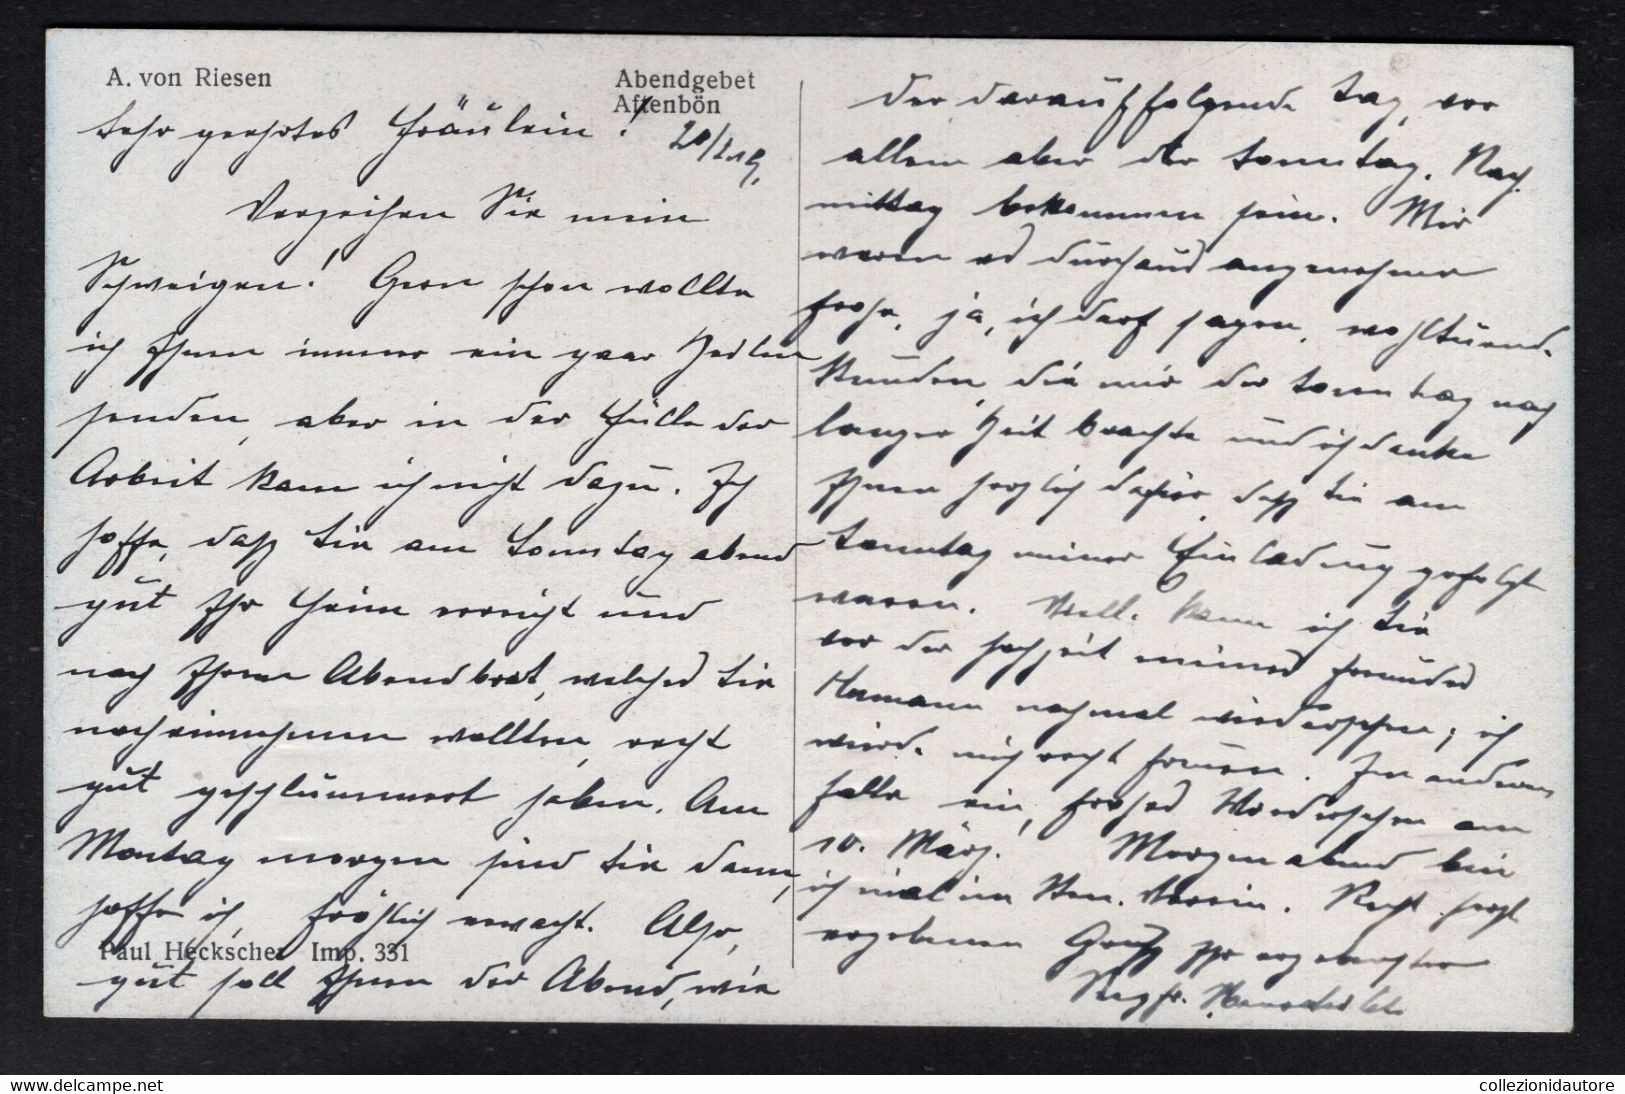 A. von Riesen
Abendgebet
Aftenbön
Sehr geehrtes Fräulein!
20/2.19.
Verzeihen Sie mein
Schweigen! Gern schon wollte
ich Ihnen immer ein paar Zeilen
senden, aber in der Fülle der
Arbeit kam ich nicht dazu. Ich
hoffe, daß Sie am Sonntag abend
gut Ihr Heim erreicht und
nach Ihrem Abendbrot, welches Sie
noch einnehmen wollten, recht
gut geschlummert haben. Am
Montag morgen sind Sie dann,
hoffe ich, fröhlich erwacht. Also,
gut soll Ihnen der Abend, wie
Paul Heckscher Imp. 331
der darauffolgende Tag, vor
allem aber der Sonntag. Nach-
mittag bekommen sein. Mir
waren es durchaus angenehme
frohe, ja, ich darf sagen, wohltuend.
Stunden, die mir der Sonntag nach
langer Zeit brachte und ich danke
Ihnen herzlich dafür, daß Sie am
Sonntag meiner Einladung gefolgt
waren. Vell. kann ich Sie
vor der Hochzeit meines Freundes
Hermann nochmal wiedersehen; ich
würde mich recht freuen. Im anderen
Falle ein frohes Wiedersehen am
10. März. Morgen abend bin
ich mal im Sten. Verein. Recht herzl
ergebenen Gruß Ihr ergebenster
Siegfr.